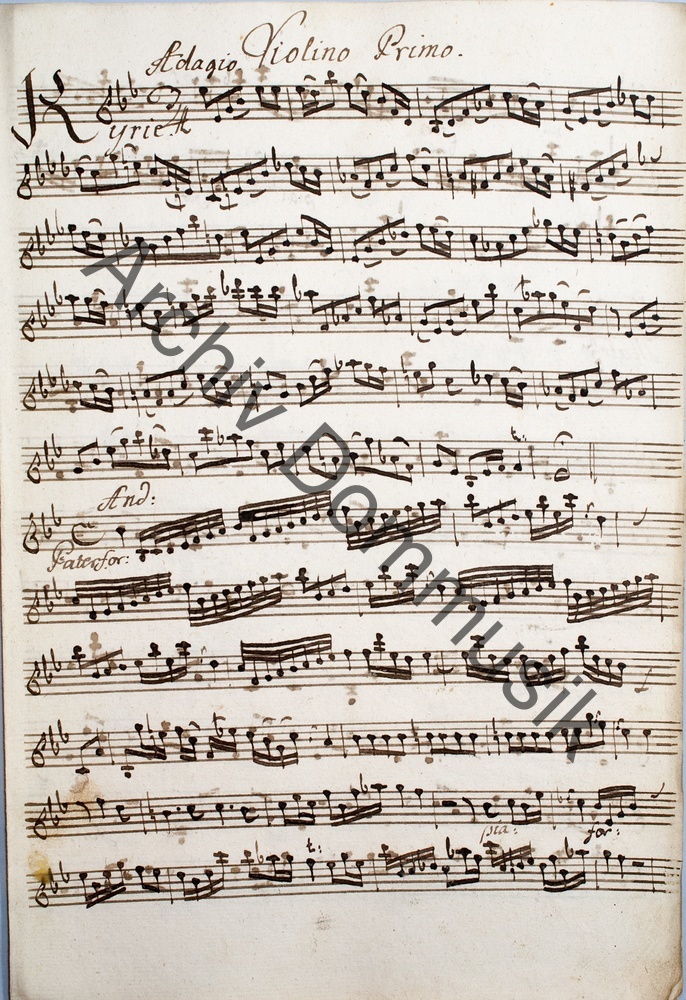 Adagio Violino Primo.
Kyrie.
And:
Pater for:
pia: for:
t:
Archiv Dommusik